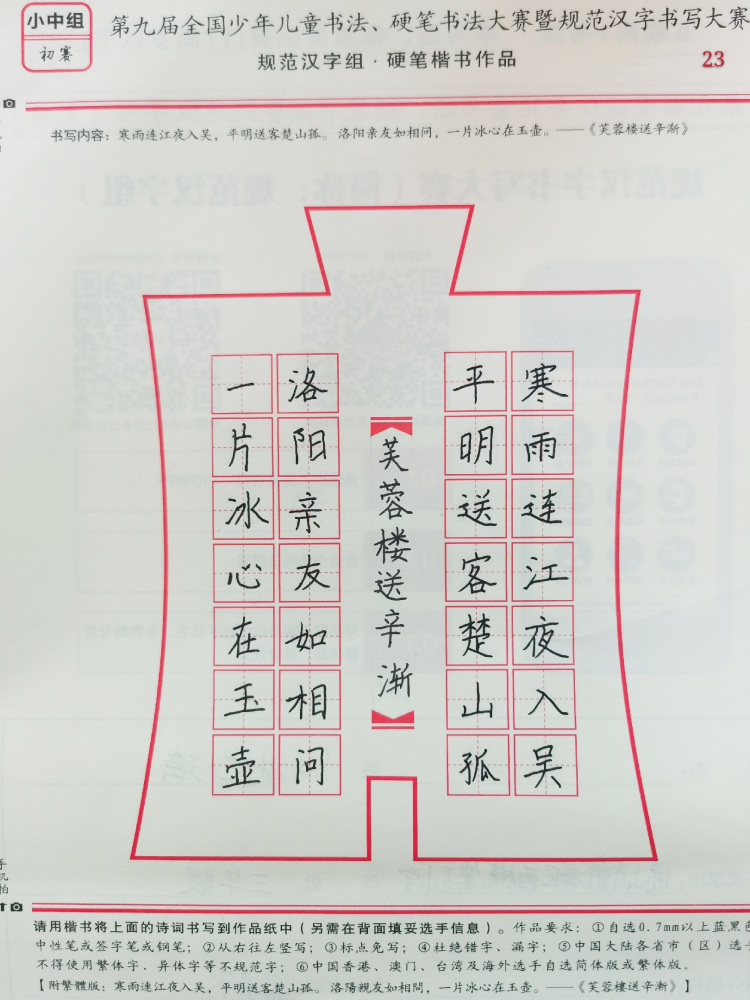 小中组
初赛
第九届全国少年儿童书法、硬笔书法大赛暨规范汉字书写大赛
规范汉字组·硬笔楷书作品
23
书写内容：寒雨连江夜入吴，平明送客楚山孤。洛阳亲友如相问，一片冰心在玉壶。——《芙蓉楼送辛渐》
寒雨连江夜入吴
平明送客楚山孤
芙蓉楼送辛渐
洛阳亲友如相问
一片冰心在玉壶
请用楷书将上面的诗词书写到作品纸中（另需在背面填妥选手信息）。作品要求：①自选0.7mm以上蓝黑色
中性笔或签字笔或钢笔；②从右往左竖写；③标点免写；④杜绝错字、漏字；⑤中国大陆各省市（区）选手
不得使用繁体字、异体字等不规范字；⑥中国香港、澳门、台湾及海外选手自选简体版或繁体版。
【附繁體版：寒雨連江夜入吳，平明送客楚山孤。洛陽親友如相問，一片冰心在玉壺。——《芙蓉樓送辛漸》】